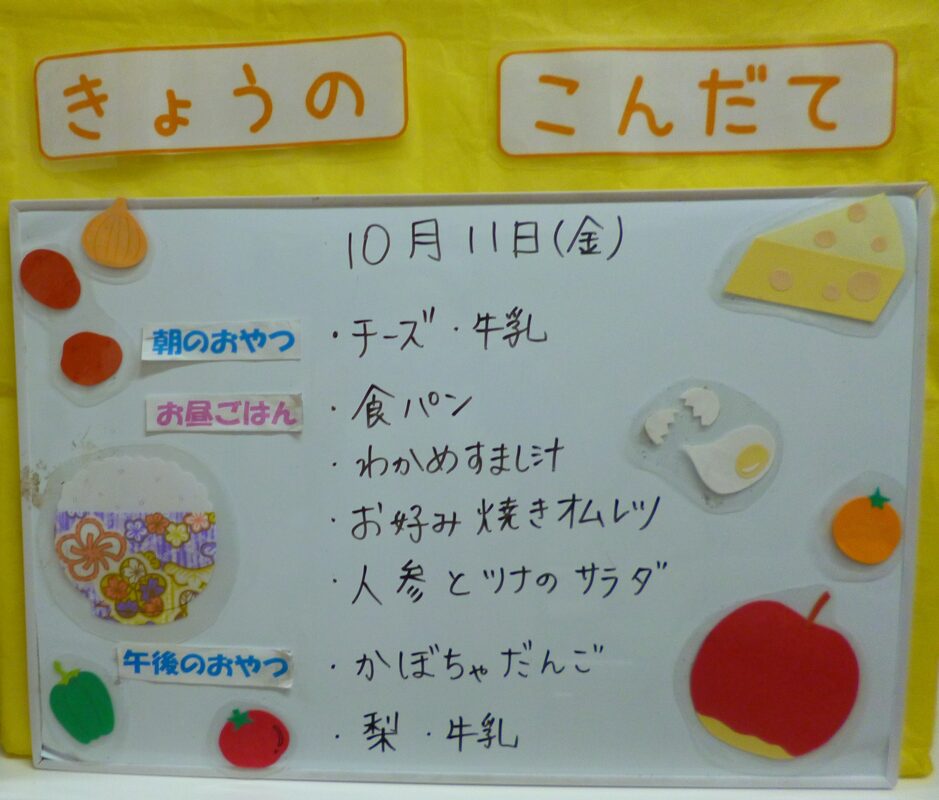 きょうの こんだて
10月11日(金)
朝のおやつ ・チーズ・牛乳
お昼ごはん ・食パン
・わかめすまし汁
・お好み焼きオムレツ
・人参とツナのサラダ
午後のおやつ ・かぼちゃだんご
・梨・牛乳